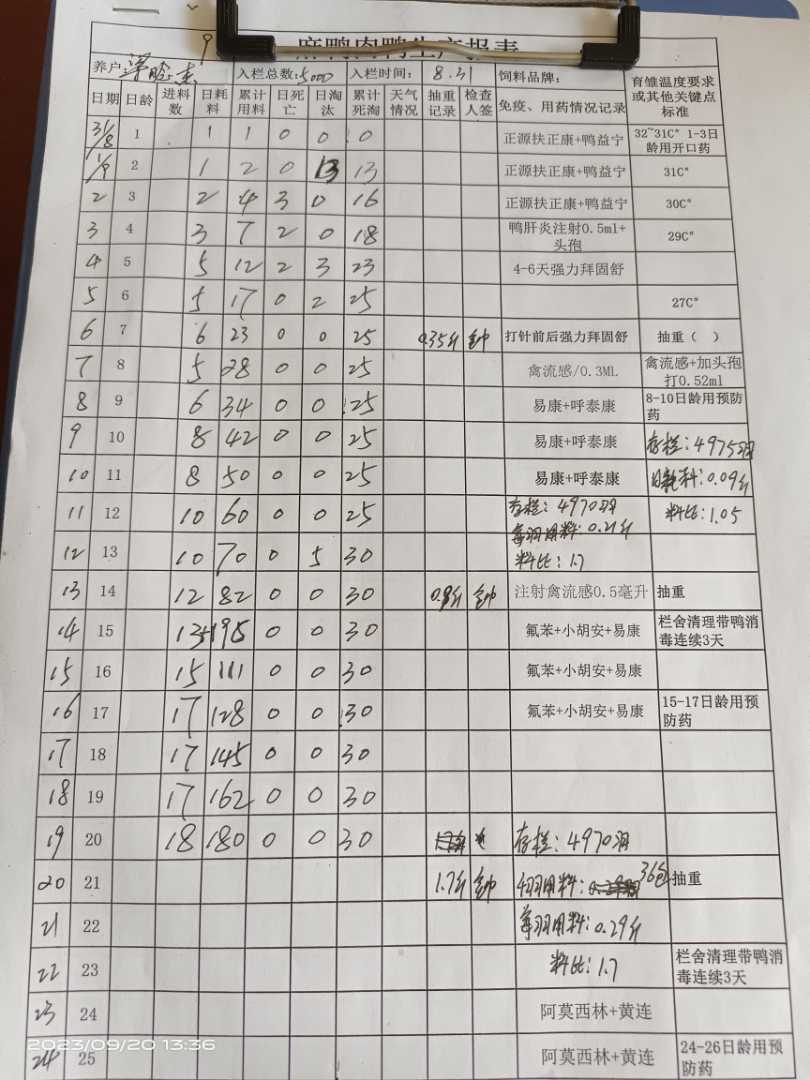 麻鸭肉鸭生产报表
养户: 入栏总数:5000 入栏时间: 8.31 饲料品牌: 育雏温度要求或其他关键点标准
日期 日龄 进料数 日耗料 累计用料 日死亡 日淘汰 累计死淘 天气情况 抽重记录 检查人签 免疫、用药情况记录
31/8 1 1 1 0 0 0 正源扶正康+鸭益宁 32~31C° 1-3日龄用开口药
1/9 2 1 2 0 13 13 正源扶正康+鸭益宁 31C°
2 3 2 4 3 0 16 正源扶正康+鸭益宁 30C°
3 4 3 7 2 0 18 鸭肝炎注射0.5ml+头孢 29C°
4 5 5 12 2 3 23 4-6天强力拜固舒
5 6 5 17 0 2 25 27C°
6 7 6 23 0 0 25 0.35斤 钟 打针前后强力拜固舒 抽重（ ）
7 8 5 28 0 0 25 禽流感/0.3ML 禽流感+加头孢打0.52ml
8 9 6 34 0 0 25 易康+呼泰康 8-10日龄用预防药
9 10 8 42 0 0 25 易康+呼泰康 存栏:4975羽
10 11 8 50 0 0 25 易康+呼泰康 日耗料:0.09斤
11 12 10 60 0 0 25 存栏:4970羽 每羽用料:0.21斤 料比:1.05
12 13 10 70 0 5 30 料比:1.7
13 14 12 82 0 0 30 0.8斤 钟 注射禽流感0.5毫升 抽重
14 15 0 0 30 氟苯+小胡安+易康 栏舍清理带鸭消毒连续3天
15 16 15 111 0 0 30 氟苯+小胡安+易康
16 17 17 128 0 0 30 氟苯+小胡安+易康 15-17日龄用预防药
17 18 17 145 0 0 30
18 19 17 162 0 0 30
19 20 18 180 0 0 30 存栏:4970羽
20 21 1.7斤 钟 用料: 36包 抽重
21 22 每羽用料:0.29斤
22 23 料比:1.7 栏舍清理带鸭消毒连续3天
23 24 阿莫西林+黄连
24 25 阿莫西林+黄连 24-26日龄用预防药
2023/09/20 13:36